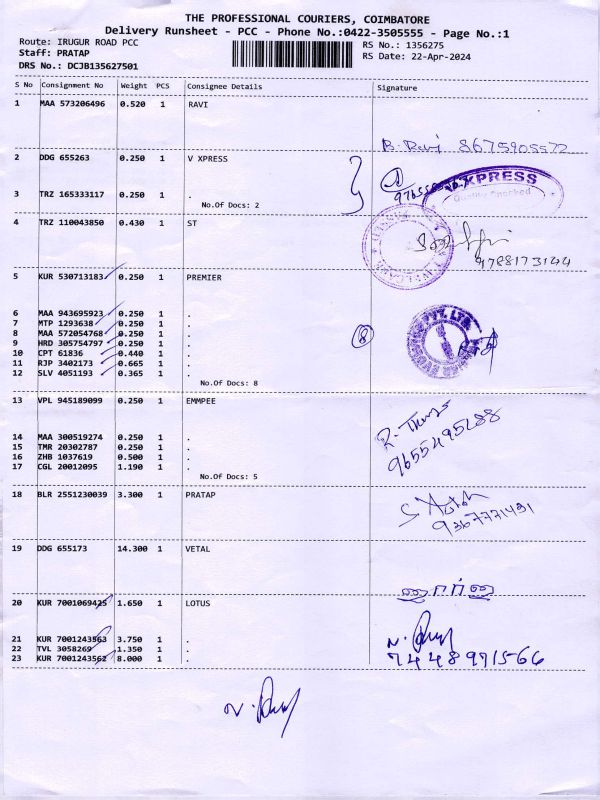 THE PROFESSIONAL COURIERS, COIMBATORE
Delivery Runsheet - PCC - Phone No.:0422-3505555 - Page No.:1
Route: IRUGUR ROAD PCC
RS No.: 1356275
Staff: PRATAP
RS Date: 22-Apr-2024
DRS No.: DCJB135627501
S No Consignment No Weight PCS Consignee Details Signature
1 MAA 573206496 0.520 1 RAVI
B. Ravi 8675905572
2 DDG 655263 0.250 1 V XPRESS
XPRESS
Quality Checked
3 TRZ 165333117 0.250 1 .
No.Of Docs: 2
4 TRZ 110043850 0.430 1 ST
9788173144
5 KUR 530713183 0.250 1 PREMIER
6 MAA 943695923 0.250 1 .
7 MTP 1293638 0.250 1 .
8 MAA 572054768 0.250 1 .
9 HRD 305754797 0.250 1 .
10 CPT 61836 0.440 1 .
11 RJP 3402173 0.665 1 .
12 SLV 4051193 0.365 1 .
8
No.Of Docs: 8
13 VPL 945189099 0.250 1 EMMPEE
14 MAA 300519274 0.250 1 .
15 TMR 20302787 0.250 1 .
16 ZHB 1037619 0.500 1 .
17 CGL 20012095 1.190 1 .
9655495288
No.Of Docs: 5
18 BLR 2551230039 3.300 1 PRATAP
9367771431
19 DDG 655173 14.300 1 VETAL
20 KUR 7001069425 1.650 1 LOTUS
21 KUR 7001243563 3.750 1 .
22 TVL 3058269 1.350 1 .
23 KUR 7001243562 8.000 1 .
7448971566